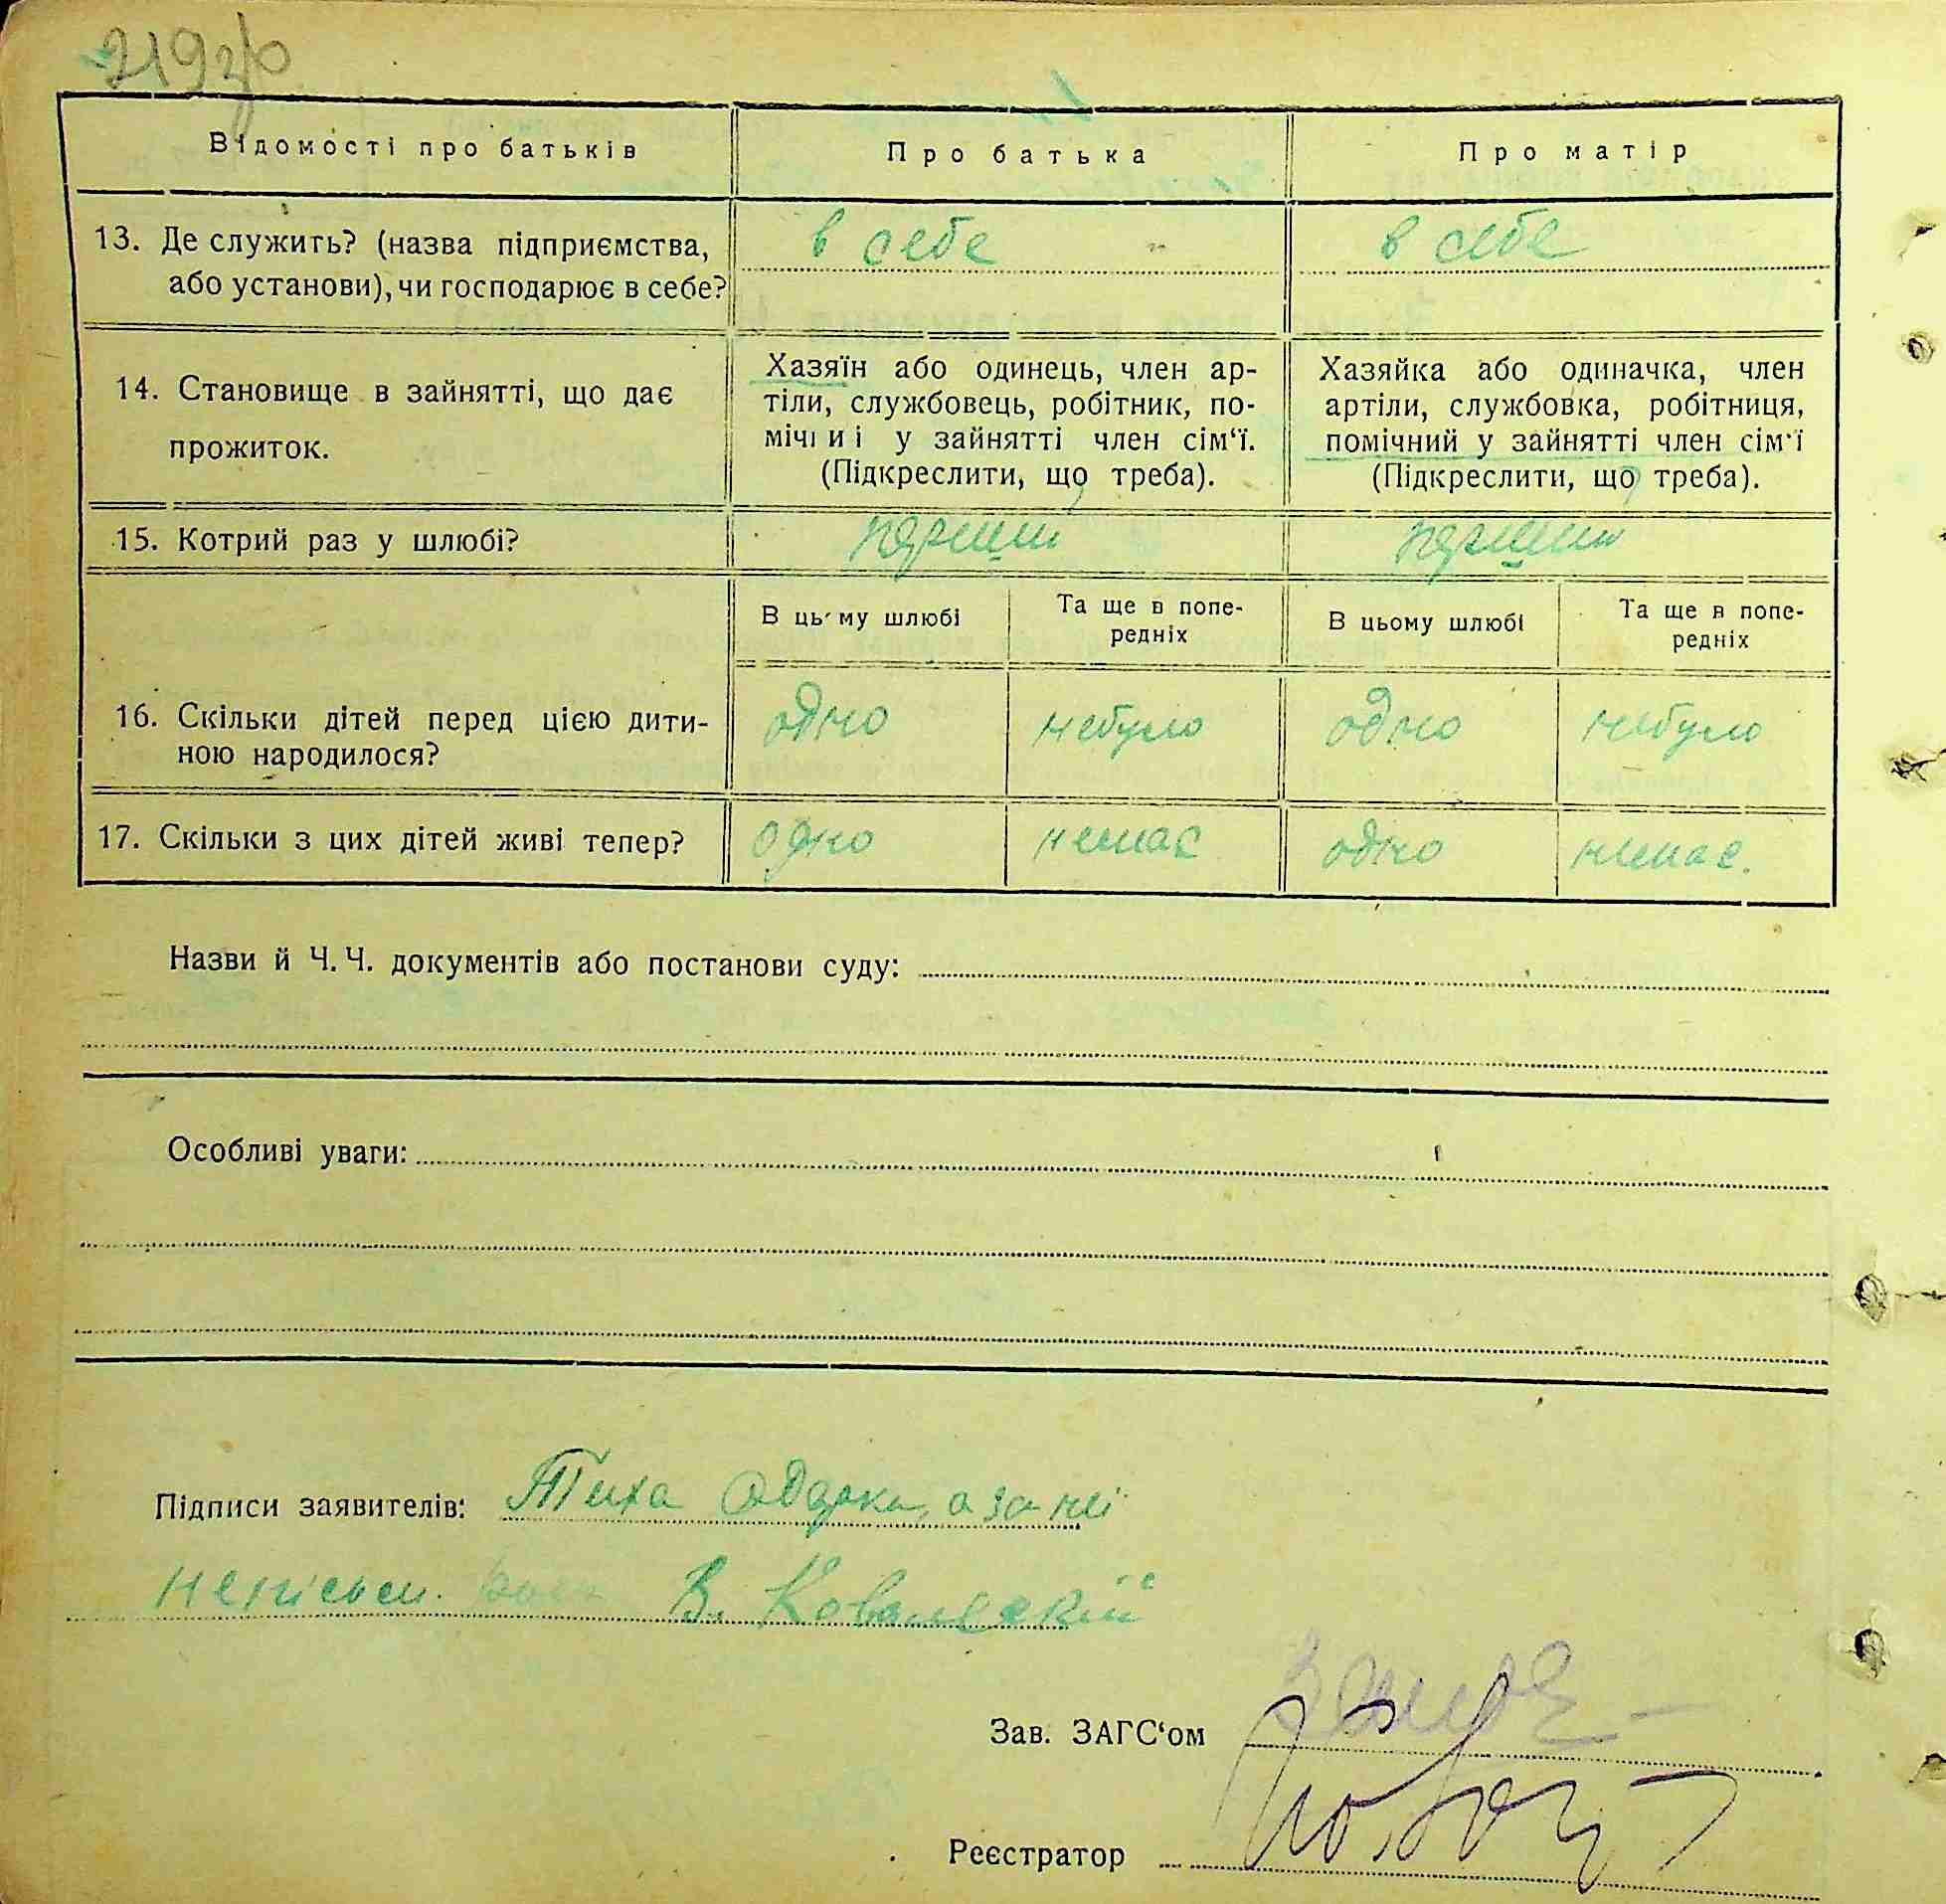 219зв
Відомості про батьків Про батька Про матір
13. Де служить? (назва підприємства, в себе в себе
або установи), чи господарює в себе?
Хазяїн або одинець, член ар- Хазяйка або одиначка, член
14. Становище в зайнятті, що дає тіли, службовець, робітник, по- артіли, службовка, робітниця,
прожиток. мічниі у зайнятті член сім‘ї. помічний у зайнятті член сім‘ї
(Підкреслити, що треба). (Підкреслити, що треба).
15. Котрий раз у шлюбі? перший перший
В цьому шлюбі Та ще в попе- В цьому шлюбі Та ще в попе-
редніх редніх
16. Скільки дітей перед цією дити- одно небуло одно небуло
ною народилося?
17. Скільки з цих дітей живі тепер? одно немає одно немає.
Назви й Ч. Ч. документів або постанови суду:
Особливі уваги:
Підписи заявителів: Тиха Одарка, а за неї
неписьм. В. Ковалевскій
Зав. ЗАГС‘ом
Реєстратор